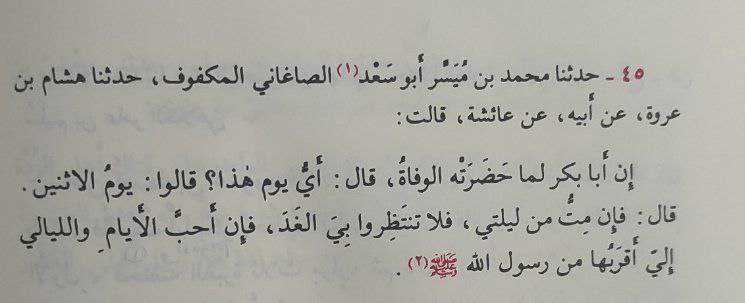 ٤٥ - حدثنا محمد بن مُيَسَّر أَبو سَعْد(١) الصاغاني المكفوف، حدثنا هشام بن
عروة، عن أَبيه، عن عائشة، قالت:
إِن أَبا بكر لما حَضَرَتْه الوفاةُ، قال: أَيُّ يوم هٰذا؟ قالوا: يومُ الاثنين.
قال: فإِن مِتُّ من ليلتي، فلا تنتَظِروا بِيَ الغَدَ، فإِن أَحبَّ الأَيامِ والليالي
إِليّ أَقرَبُها من رسول الله ﷺ(٢).